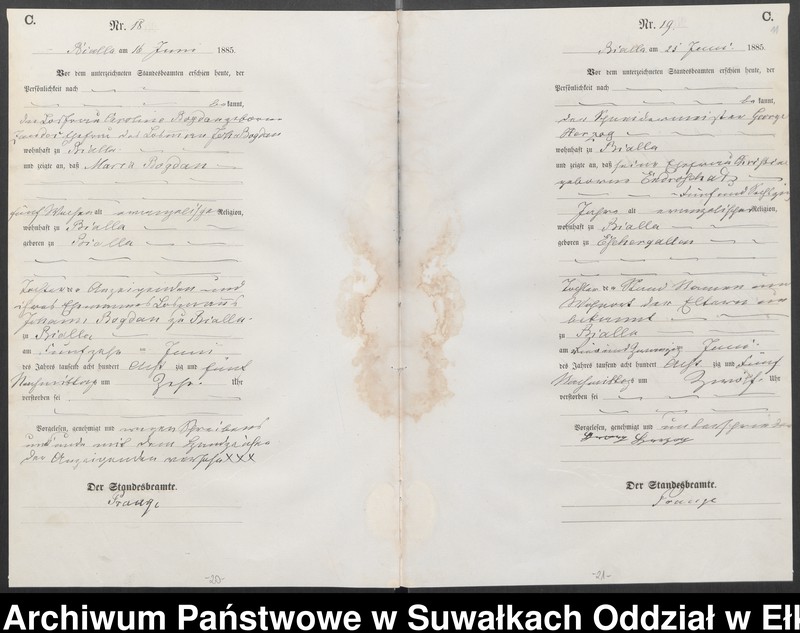 C.
Nr. 18
Bialla am 16 Juni 1885.
Vor dem unterzeichneten Standesbeamten erschien heute, der
Persönlichkeit nach
be kannt,
die Losfrau Caroline Bogdan geborne
Ehefrau des Losmann Bogdan
wohnhaft zu Bialla
und zeigte an, daß Maria Bogdan
fünf Wochen alt evangelischer Religion,
wohnhaft zu Bialla
geboren zu Bialla
Tochter der Anzeigenden und
ihres Ehemannes Losmanns
Johann Bogdan zu Bialla
zu Bialla
am fünfzehn Juni
des Jahres tausend acht hundert acht zig und fünf
Nachmittag um Zehn Uhr
verstorben sei
Vorgelesen, genehmigt und wegen Schreibens
mit dem Handzeichen
der Anzeigenden versehn XXX
Der Standesbeamte.
Prange
-20-
C.
Nr. 19
11
Bialla am 25 Juni 1885.
Vor dem unterzeichneten Standesbeamten erschien heute, der
Persönlichkeit nach
be kannt,
der Schneidermeister George
Herzog
wohnhaft zu Bialla
und zeigte an, daß seine Ehefrau
geborene
fünf und sechzig
Jahre alt evangelischer Religion,
wohnhaft zu Bialla
geboren zu
Tochter der Stand Namen und
Wohnort der Eltern un
bekannt
zu Bialla
am Juni
des Jahres tausend acht hundert acht zig und fünf
Nachmittag um Zwölf Uhr
verstorben sei
Vorgelesen, genehmigt und unterschrieben
Georg Herzog
Der Standesbeamte.
Prange
-21-
Archiwum Państwowe w Suwałkach Oddział w Ełk